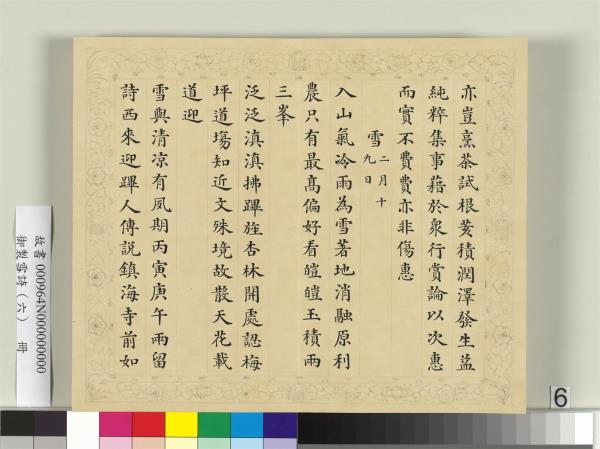 亦豈烹茶試根荄積潤澤發生益
純粹集事藉於衆行賞論以次惠
而實不費費亦非傷惠
雪 二月十
九日
入山氣冷雨為雪著地消融原利
農只有最髙偏好看皚皚玉積兩
三峯
泛泛滇滇拂蹕旌杏林開處認梅
坪道塲知近文殊境故散天花載
道迎
雪與清凉有夙期丙寅庚午兩留
詩西來迎蹕人傳説鎮海寺前如
故書 000964N000000000
御製雪詩（六） 冊
6